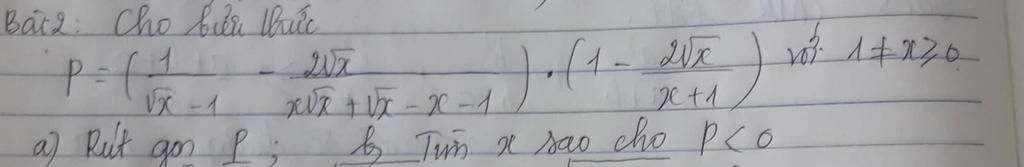 Bài 2: Cho biểu thức
P = (1/(√x - 1) - 2√x/(x√x + √x - x - 1)) . (1 - 2√x/(x + 1)) với 1 ≠ x ≥ 0
a) Rút gọn P; b, Tìm x sao cho P < 0